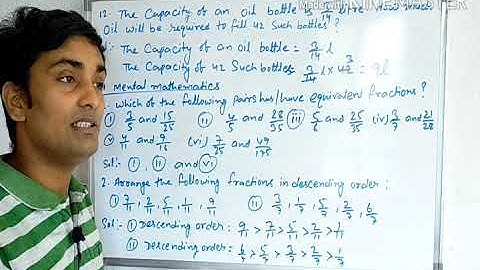 12. The Capacity of an oil bottle is
Oil will be required to fill 42 Such bottles?
: The Capacity of an oil bottle = 3/14 l
The Capacity of 42 Such bottles = 3/14 l x 42 = 9l
Mental mathematics
which of the following pairs has/have equivalent fractions?
(i) 3/5 and 15/25 (ii) 4/5 and 28/35 (iii) 5/6 and 25/35 (iv) 3/7 and 21/28
(v) 4/11 and 9/16 (vi) 7/25 and 49/175
Sol:- (i), (ii) and (vi)
2. Arrange the following fractions in descending order:
(i) 7/11, 2/11, 5/11, 1/11, 9/11 (ii) 3/7, 1/7, 5/7, 2/7, 6/7
Sol:- (i) Descending order: 9/11 > 7/11 > 5/11 > 2/11 > 1/11
(ii) Descending order: 6/7 > 5/7 > 3/7 > 2/7 > 1/7